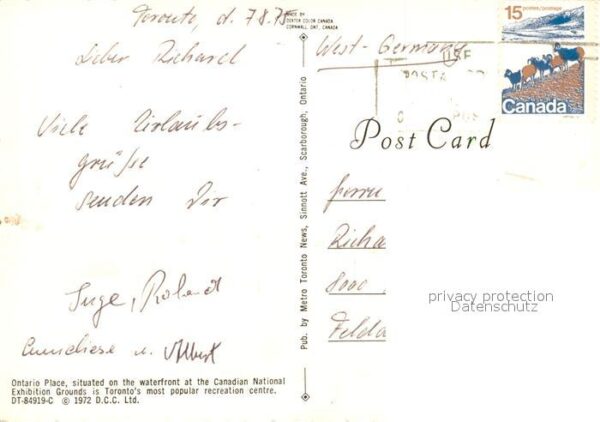 Toronto, d. 7.8.75
Lieber Richard
Viele Urlaubs-
grüße
senden Dir
Inge, Roland
u. Albert
Ontario Place, situated on the waterfront at the Canadian National
Exhibition Grounds is Toronto's most popular recreation centre.
DT-84919-C © 1972 D.C.C. Ltd.
MADE BY
DEXTER COLOR CANADA
CORNWALL, ONT., CANADA
Pub. by Metro Toronto News, Sinnott Ave., Scarborough, Ontario
West-Germany
15 postes/postage
Canada
USE
POSTAL
Post Card
Herrn
Richa
8000
Felda
privacy protection
Datenschutz